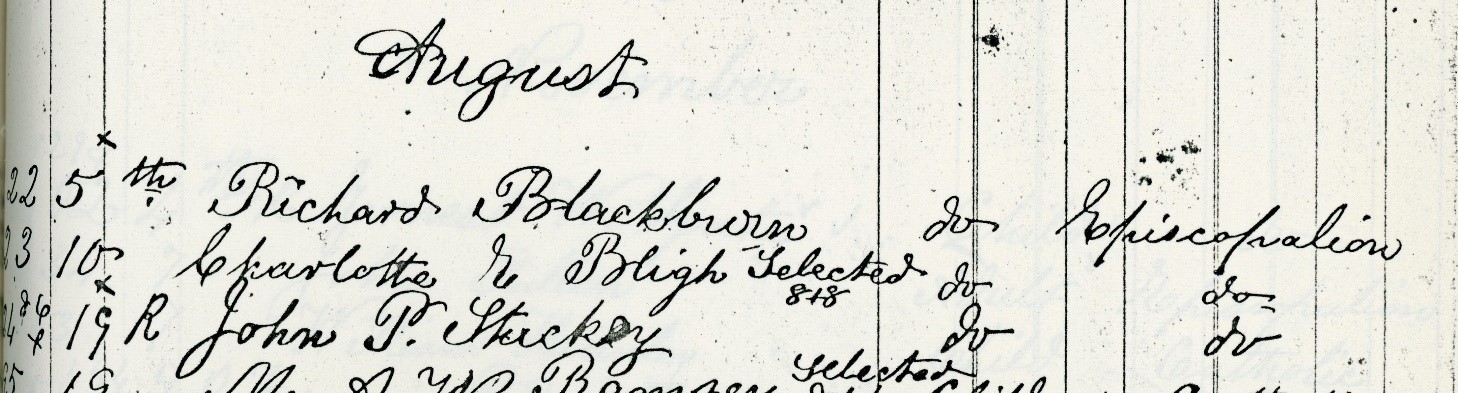 August
x
22 5 th Richard Blackburn do Episcopalion
23 10 Charlotte E Bligh Selected do do
8+8
x
19 R John P. Stuckey do do
Selected
19 Ramsey